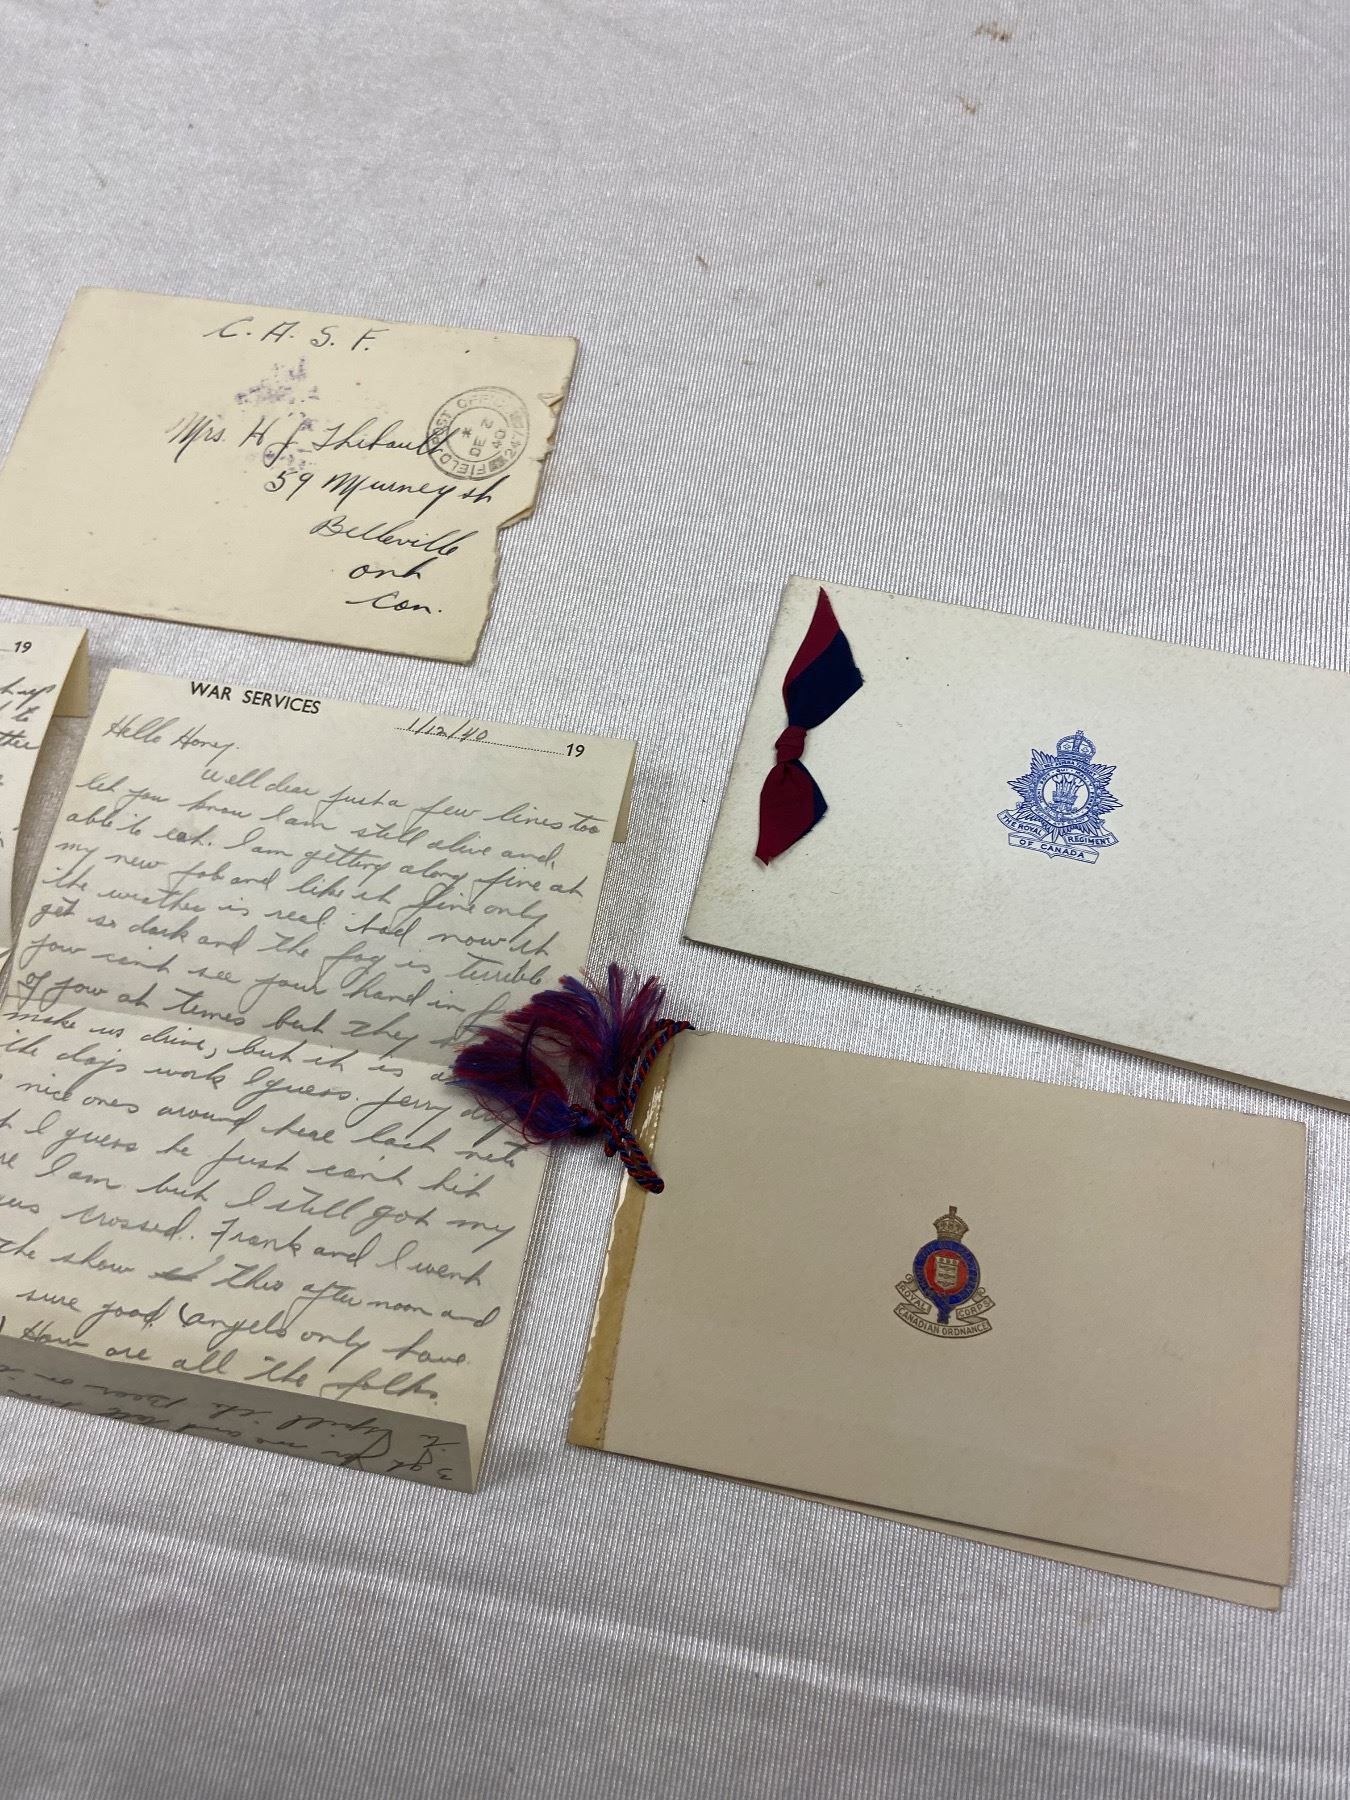 C. A. S. F.
Mrs. H J Thibault
59 Murney st
Belleville
Ont
Can.
FIELD POST OFFICE
* DE 2 40
247
19
WAR SERVICES
1/12/40 19
Hello Honey.
Well dear just a few lines too
let you know I am still alive and
able to eat. I am getting along fine at
my new job and like it fine only
the weather is real bad now it
get so dark and the fog is terrible
you can't see your hand in
of you at times but they
make us drive, but it is
the days work I guess. Jerry
nice ones around here last nite
I guess he just can't hit
I am but I still got my
crossed. Frank and I went
the show this afternoon and
sure good (angels only have
How are all the folks.
THE ROYAL REGIMENT
OF CANADA
ROYAL CORPS
CANADIAN ORDNANCE